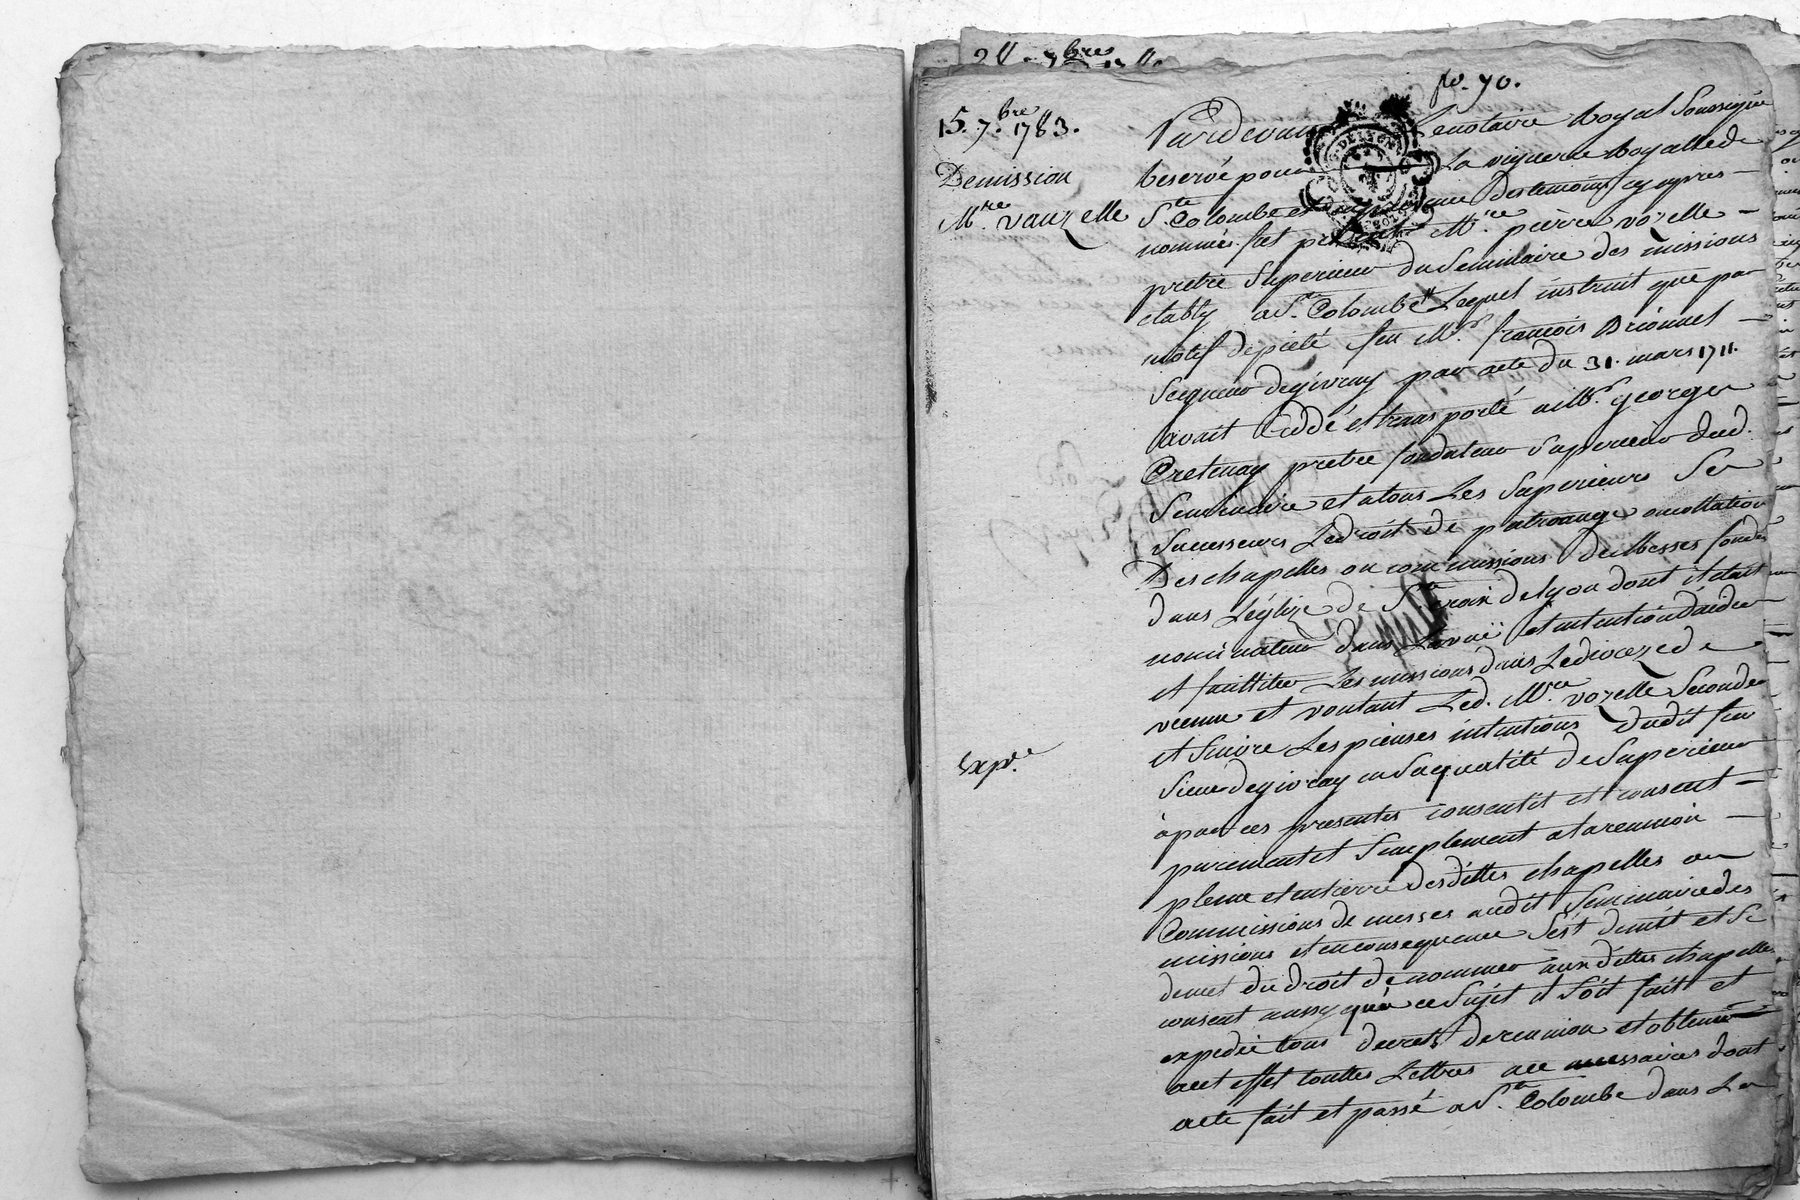 fo. 70.
15. 7.bre 1783.
Demission
Mre. vauzelle
Pardevant Le notaire Royal Soussigné
Reservé pour La viguerie Royalle de
Ste Colombe et en presence Des temoins cy apres
nommés fut present Mre. pierre vozelle
pretre Superieur du Seminaire des missions
etably a Ste. Colombe Lequel instruit que par
motif de pieté feu Mr. francois Brionnel
Seigneur de givray par acte du 31. mars 1711.
avait Cedé et transporté a Mr. george
Cretenay pretre fondateur Superieur dud.
Seminaire et a tous Les Superieurs Ses
Successeurs Le droit de patronage ou collation
Des chapelles ou commissions de Messes fondés
dans L'église de Ste croix de Lyon dont il etait
nominateur dans La vuë et intention d'aider
et faciliter Les missions dans Le dioceze de
vienne et voulant Led. Mre. vozelle Seconder
et Suivre Les pieuses intentions dudit feu
Sieur de givray en Sa qualité de Superieur
à par ces presentes consentit et consent
purement et Simplement a la reunion
pleine et entierre desdittes chapelles ou
Commissions de messes audit Seminaire des
missions et en consequence S'est demit et Se
demet du droit de nommer aux dittes chapelles
consent aussy qu'à ce Sujet il Soit fait et
expedié tous decrets de reunion et obtenu
a cet effet touttes Lettres a ce necessaires dont
acte fait et passé a Ste. Colombe dans La
Expé.